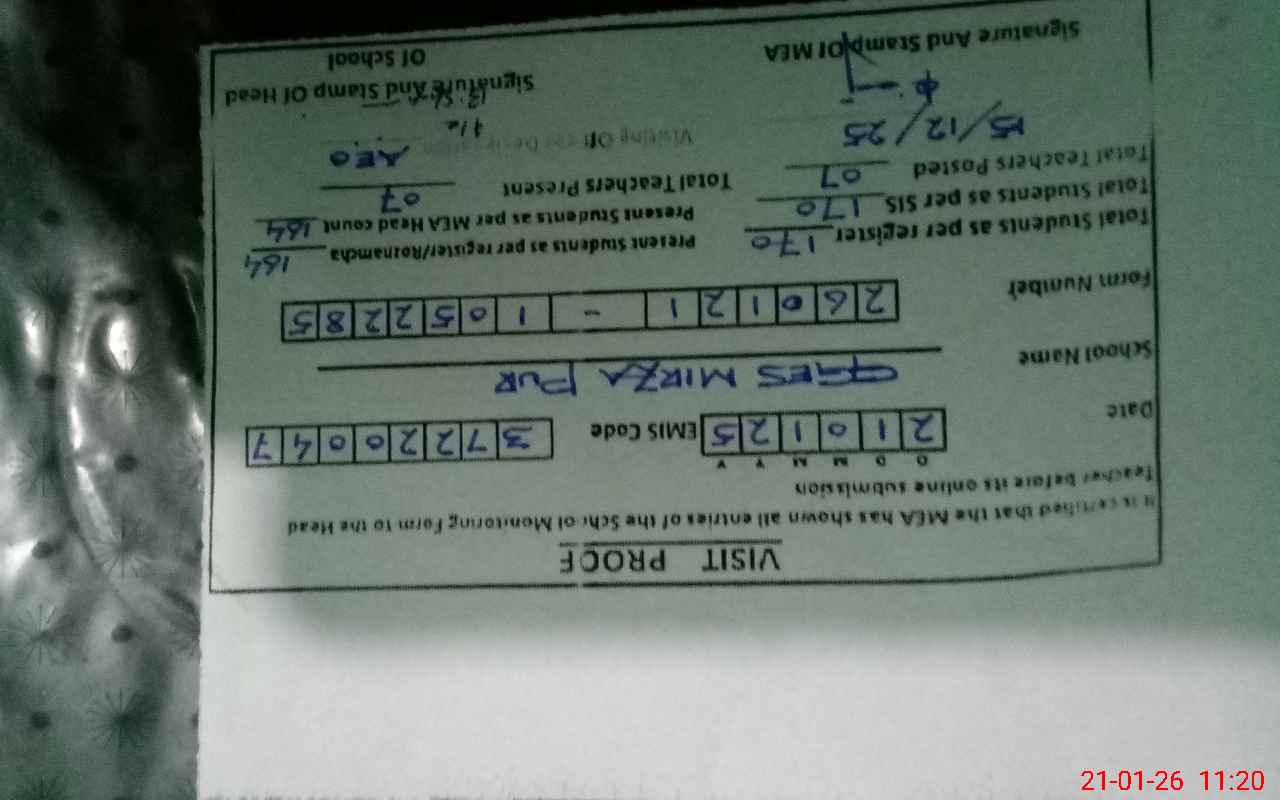 VISIT PROOF
It is certified that the MEA has shown all entries of the School Monitoring Form to the Head
Teacher before its online submission
D D M M Y Y
Date 2 1 0 1 2 5 EMIS Code 3 7 2 2 0 0 4 7
School Name GGES MIRZA PUR
Form Number 2 6 0 1 2 1 - 1 0 5 2 2 8 5
Total Students as per register 170 Present Students as per register/Roznamcha 164
Total Students as per SIS 170 Present Students as per MEA Head count 164
Total Teachers Posted 07 Total Teachers Present 07
15/12/25 Visiting Officer Designation AEO
Signature And Stamp Of MEA Signature And Stamp Of Head
Of School
21-01-26 11:20